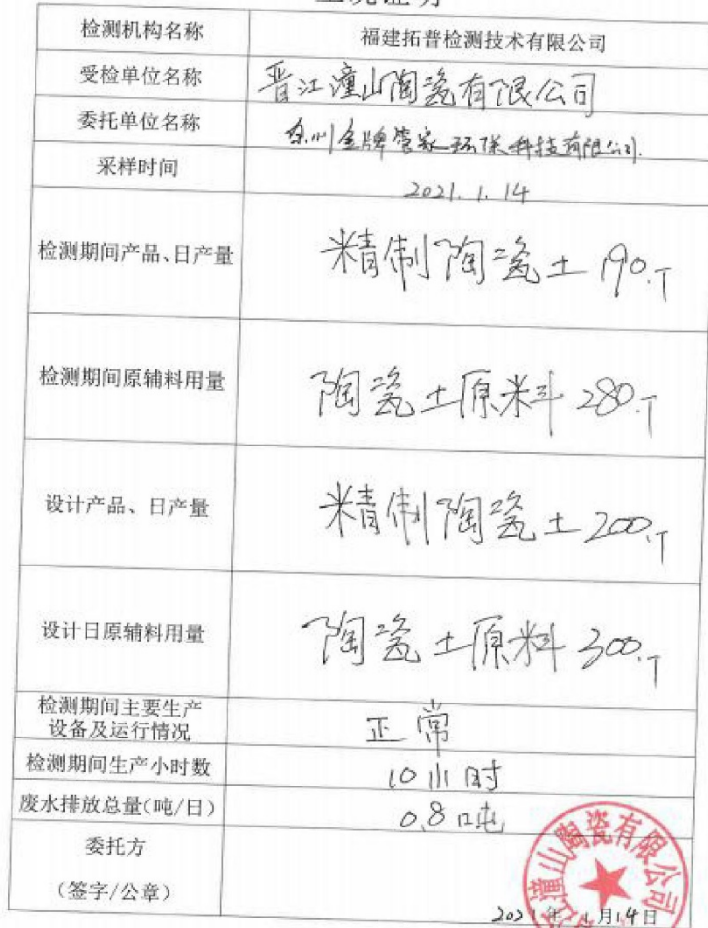 检测机构名称 福建拓普检测技术有限公司
受检单位名称 晋江潼山陶瓷有限公司
委托单位名称 泉州金牌管家环保科技有限公司.
采样时间 2021.1.14
检测期间产品、日产量 精制陶瓷土 190.T
检测期间原辅料用量 陶瓷土原料 280.T
设计产品、日产量 精制陶瓷土 200.T
设计日原辅料用量 陶瓷土原料 300.T
检测期间主要生产
设备及运行情况 正常
检测期间生产小时数 10小时
废水排放总量(吨/日) 0.8吨
委托方
(签字/公章)
江潼山陶瓷有限公司
2021年1月14日